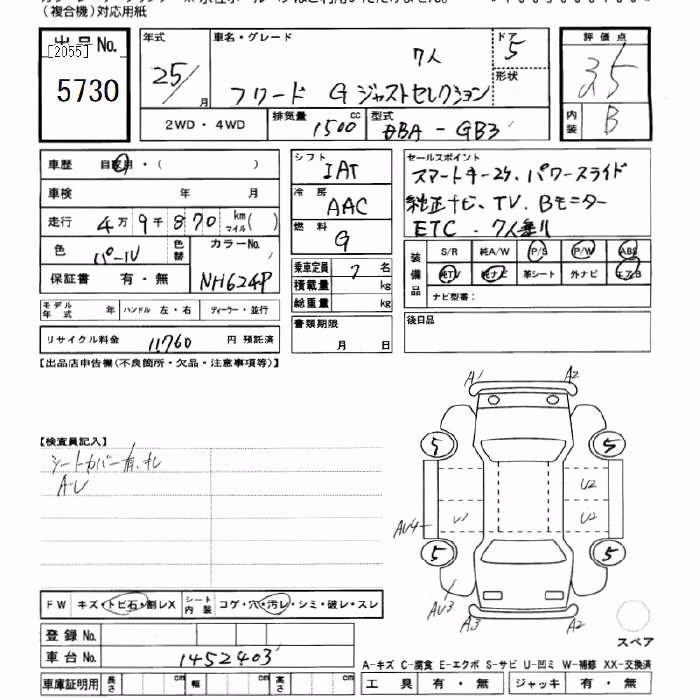 （複合機）対応用紙
出品No.
[2055]
5730
年式
25/
月
車名・グレード
7人
フリード G ジャストセレクション
ドア
5
形状
2WD・4WD
排気量
1500
cc
型式
DBA-GB3
評価点
3.5
内装
B
車歴
自家用・( )
車検
年
月
走行
4万9千870
km
マイル
( )
色
パール
色替
カラーNo.
NH624P
保証書
有・無
モデル年式
年
ハンドル
左・右
ディーラー・並行
リサイクル料金
11760
円
預託済
シフト
IAT
冷房
AAC
燃料
G
乗車定員
7
名
積載量
kg
総重量
kg
書類期限
月
日
セールスポイント
スマートキー2ケ、パワースライド
純正ナビ、TV、Bモニター
ETC、7人乗り
装備品
S/R
純A/W
P/S
P/W
ABS
純TV
純ナビ
革シート
外ナビ
エアB
ナビ型番：
後日品
【出品店申告欄(不良箇所・欠品・注意事項等)】
【検査員記入】
A1
A2
5
5
U2
U1
U2
AU4
5
5
AU3
A3
A2
スペア
FW
キズ・トビ石・割レX
シート内装
コゲ・穴・汚レ・シミ・破レ・スレ
登録No.
車台No.
1452403
車庫証明用
長さ
cm
幅
cm
高さ
cm
A-キズ C-腐食 E-エクボ S-サビ U-凹ミ W-補修 XX-交換済
工具
有・無
ジャッキ
有・無